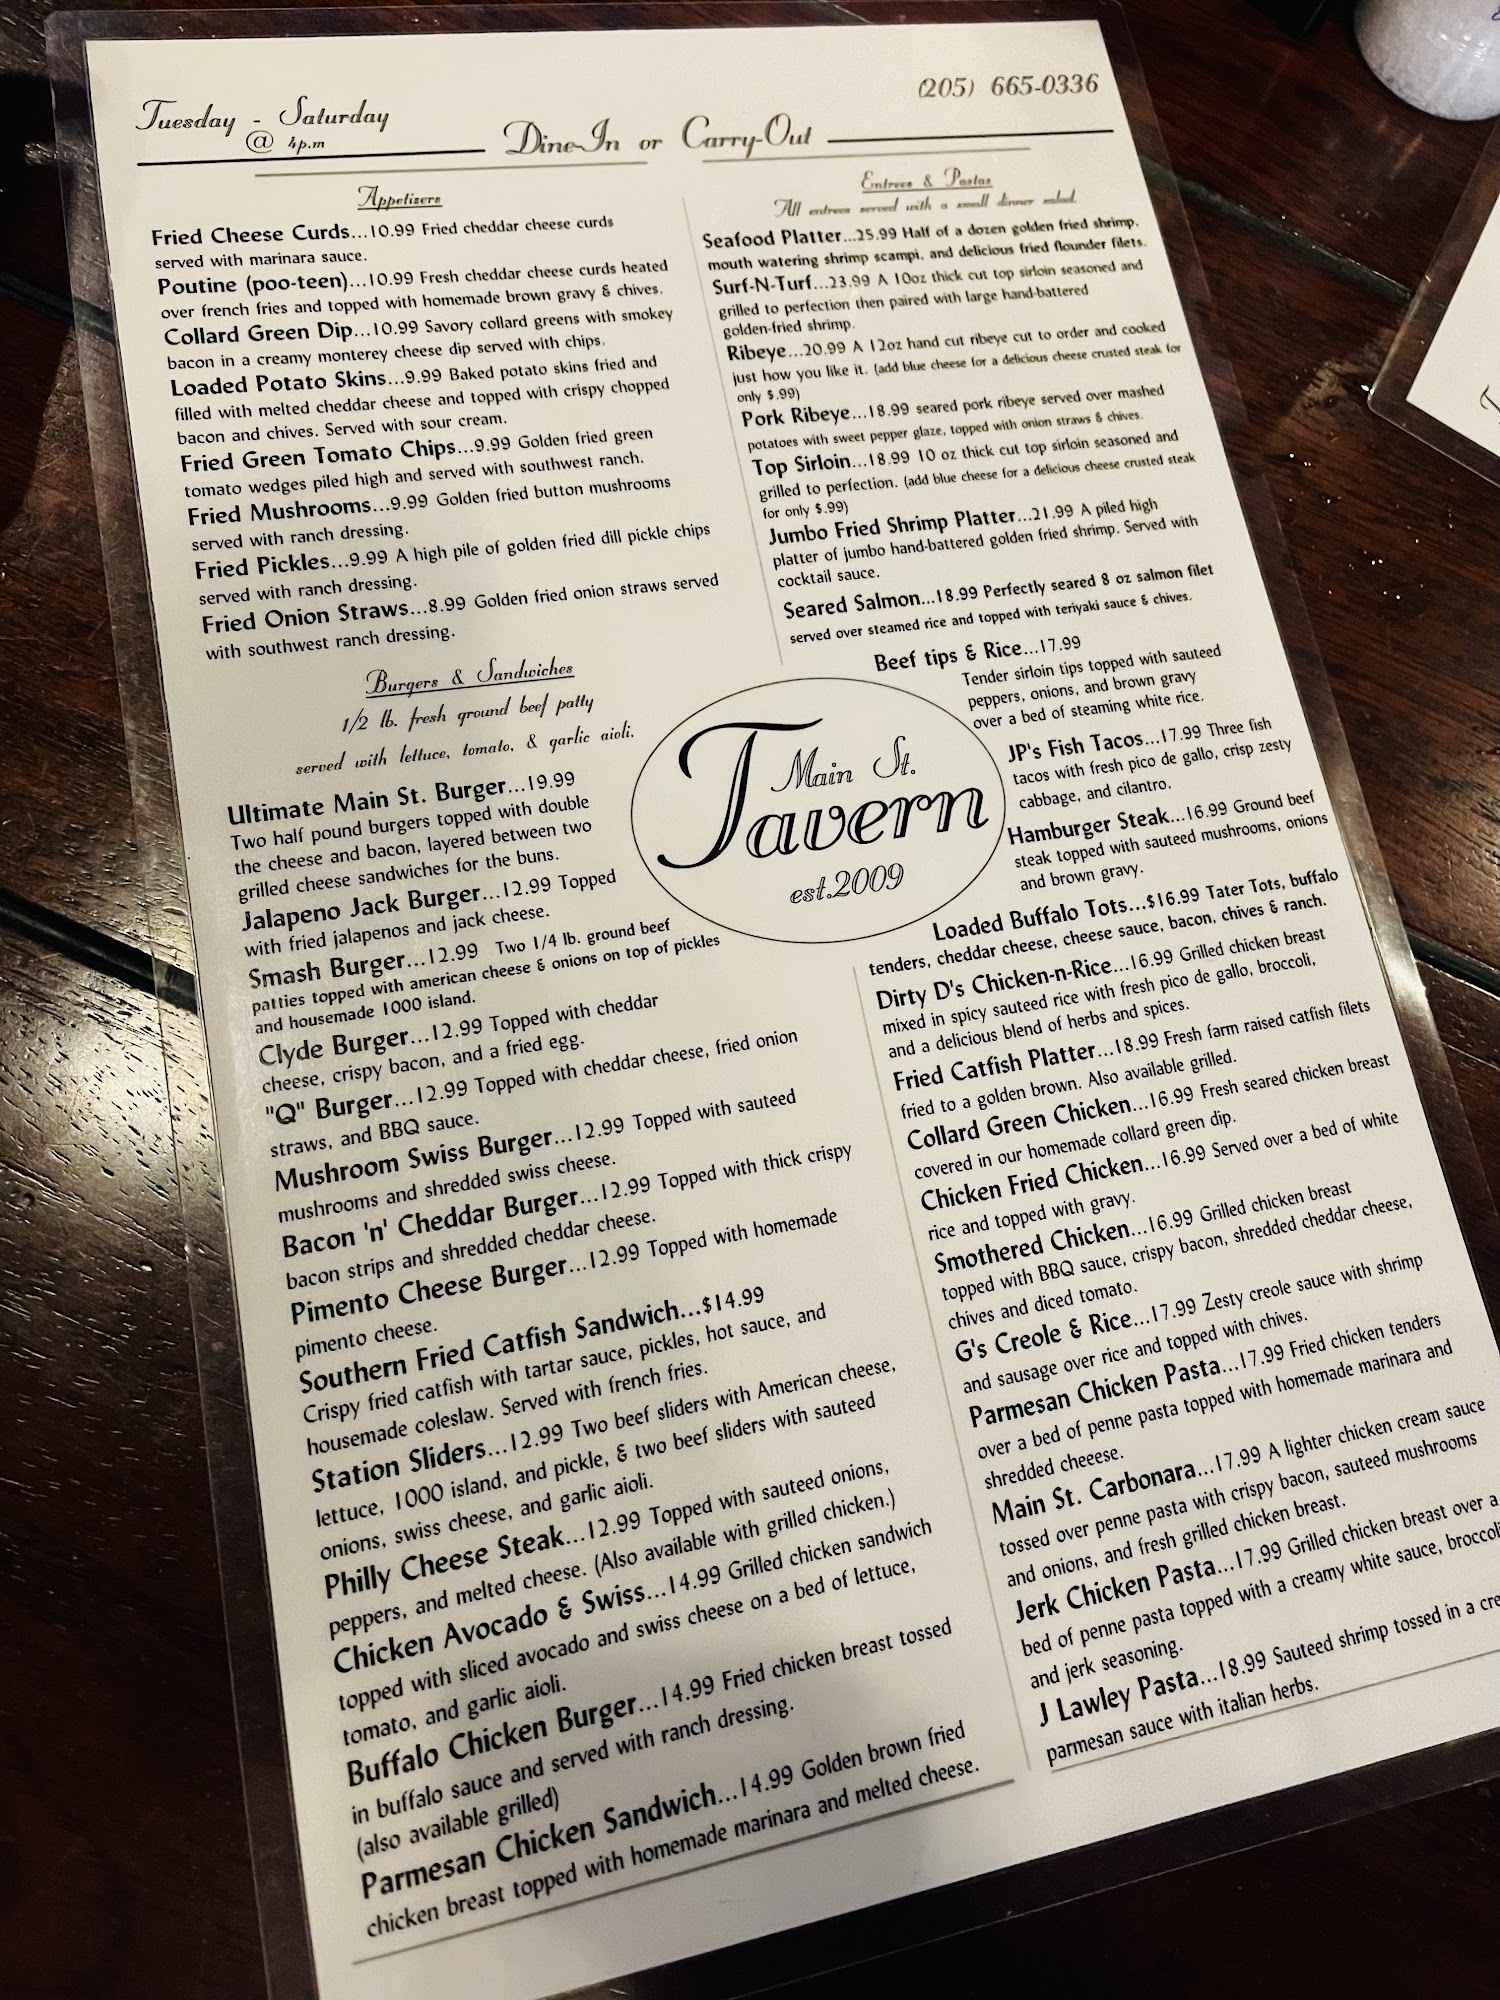 Tuesday - Saturday
@ 4p.m
Dine-In or Carry-Out
(205) 665-0336
Appetizers
Fried Cheese Curds...10.99 Fried cheddar cheese curds
served with marinara sauce.
Poutine (poo-teen)...10.99 Fresh cheddar cheese curds heated
over french fries and topped with homemade brown gravy & chives.
Collard Green Dip...10.99 Savory collard greens with smokey
bacon in a creamy monterey cheese dip served with chips.
Loaded Potato Skins...9.99 Baked potato skins fried and
filled with melted cheddar cheese and topped with crispy chopped
bacon and chives. Served with sour cream.
Fried Green Tomato Chips...9.99 Golden fried green
tomato wedges piled high and served with southwest ranch.
Fried Mushrooms...9.99 Golden fried button mushrooms
served with ranch dressing.
Fried Pickles...9.99 A high pile of golden fried dill pickle chips
served with ranch dressing.
Fried Onion Straws...8.99 Golden fried onion straws served
with southwest ranch dressing.
Burgers & Sandwiches
1/2 lb. fresh ground beef patty
served with lettuce, tomato, & garlic aioli.
Ultimate Main St. Burger...19.99
Two half pound burgers topped with double
the cheese and bacon, layered between two
grilled cheese sandwiches for the buns.
Jalapeno Jack Burger...12.99 Topped
with fried jalapenos and jack cheese.
Smash Burger...12.99 Two 1/4 lb. ground beef
patties topped with american cheese & onions on top of pickles
and housemade 1000 island.
Clyde Burger...12.99 Topped with cheddar
cheese, crispy bacon, and a fried egg.
"Q" Burger...12.99 Topped with cheddar cheese, fried onion
straws, and BBQ sauce.
Mushroom Swiss Burger...12.99 Topped with sauteed
mushrooms and shredded swiss cheese.
Bacon 'n' Cheddar Burger...12.99 Topped with thick crispy
bacon strips and shredded cheddar cheese.
Pimento Cheese Burger...12.99 Topped with homemade
pimento cheese.
Southern Fried Catfish Sandwich...$14.99
Crispy fried catfish with tartar sauce, pickles, hot sauce, and
housemade coleslaw. Served with french fries.
Station Sliders...12.99 Two beef sliders with American cheese,
lettuce, 1000 island, and pickle, & two beef sliders with sauteed
onions, swiss cheese, and garlic aioli.
Philly Cheese Steak...12.99 Topped with sauteed onions,
peppers, and melted cheese. (Also available with grilled chicken.)
Chicken Avocado & Swiss...14.99 Grilled chicken sandwich
topped with sliced avocado and swiss cheese on a bed of lettuce,
tomato, and garlic aioli.
Buffalo Chicken Burger...14.99 Fried chicken breast tossed
in buffalo sauce and served with ranch dressing.
(also available grilled)
Parmesan Chicken Sandwich...14.99 Golden brown fried
chicken breast topped with homemade marinara and melted cheese.
Main St.
Tavern
est.2009
Entrees & Pastas
All entrees served with a small dinner salad.
Seafood Platter...25.99 Half of a dozen golden fried shrimp,
mouth watering shrimp scampi, and delicious fried flounder filets.
Surf-N-Turf...23.99 A 10oz thick cut top sirloin seasoned and
grilled to perfection then paired with large hand-battered
golden-fried shrimp.
Ribeye...20.99 A 12oz hand cut ribeye cut to order and cooked
just how you like it. (add blue cheese for a delicious cheese crusted steak for
only $.99)
Pork Ribeye...18.99 seared pork ribeye served over mashed
potatoes with sweet pepper glaze, topped with onion straws & chives.
Top Sirloin...18.99 10 oz thick cut top sirloin seasoned and
grilled to perfection. (add blue cheese for a delicious cheese crusted steak
for only $.99)
Jumbo Fried Shrimp Platter...21.99 A piled high
platter of jumbo hand-battered golden fried shrimp. Served with
cocktail sauce.
Seared Salmon...18.99 Perfectly seared 8 oz salmon filet
served over steamed rice and topped with teriyaki sauce & chives.
Beef tips & Rice...17.99
Tender sirloin tips topped with sauteed
peppers, onions, and brown gravy
over a bed of steaming white rice.
JP's Fish Tacos...17.99 Three fish
tacos with fresh pico de gallo, crisp zesty
cabbage, and cilantro.
Hamburger Steak...16.99 Ground beef
steak topped with sauteed mushrooms, onions
and brown gravy.
Loaded Buffalo Tots...$16.99 Tater Tots, buffalo
tenders, cheddar cheese, cheese sauce, bacon, chives & ranch.
Dirty D's Chicken-n-Rice...16.99 Grilled chicken breast
mixed in spicy sauteed rice with fresh pico de gallo, broccoli,
and a delicious blend of herbs and spices.
Fried Catfish Platter...18.99 Fresh farm raised catfish filets
fried to a golden brown. Also available grilled.
Collard Green Chicken...16.99 Fresh seared chicken breast
covered in our homemade collard green dip.
Chicken Fried Chicken...16.99 Served over a bed of white
rice and topped with gravy.
Smothered Chicken...16.99 Grilled chicken breast
topped with BBQ sauce, crispy bacon, shredded cheddar cheese,
chives and diced tomato.
G's Creole & Rice...17.99 Zesty creole sauce with shrimp
and sausage over rice and topped with chives.
Parmesan Chicken Pasta...17.99 Fried chicken tenders
over a bed of penne pasta topped with homemade marinara and
shredded cheeese.
Main St. Carbonara...17.99 A lighter chicken cream sauce
tossed over penne pasta with crispy bacon, sauteed mushrooms
and onions, and fresh grilled chicken breast.
Jerk Chicken Pasta...17.99 Grilled chicken breast over a
bed of penne pasta topped with a creamy white sauce, broccoli
and jerk seasoning.
J Lawley Pasta...18.99 Sauteed shrimp tossed in a
parmesan sauce with italian herbs.